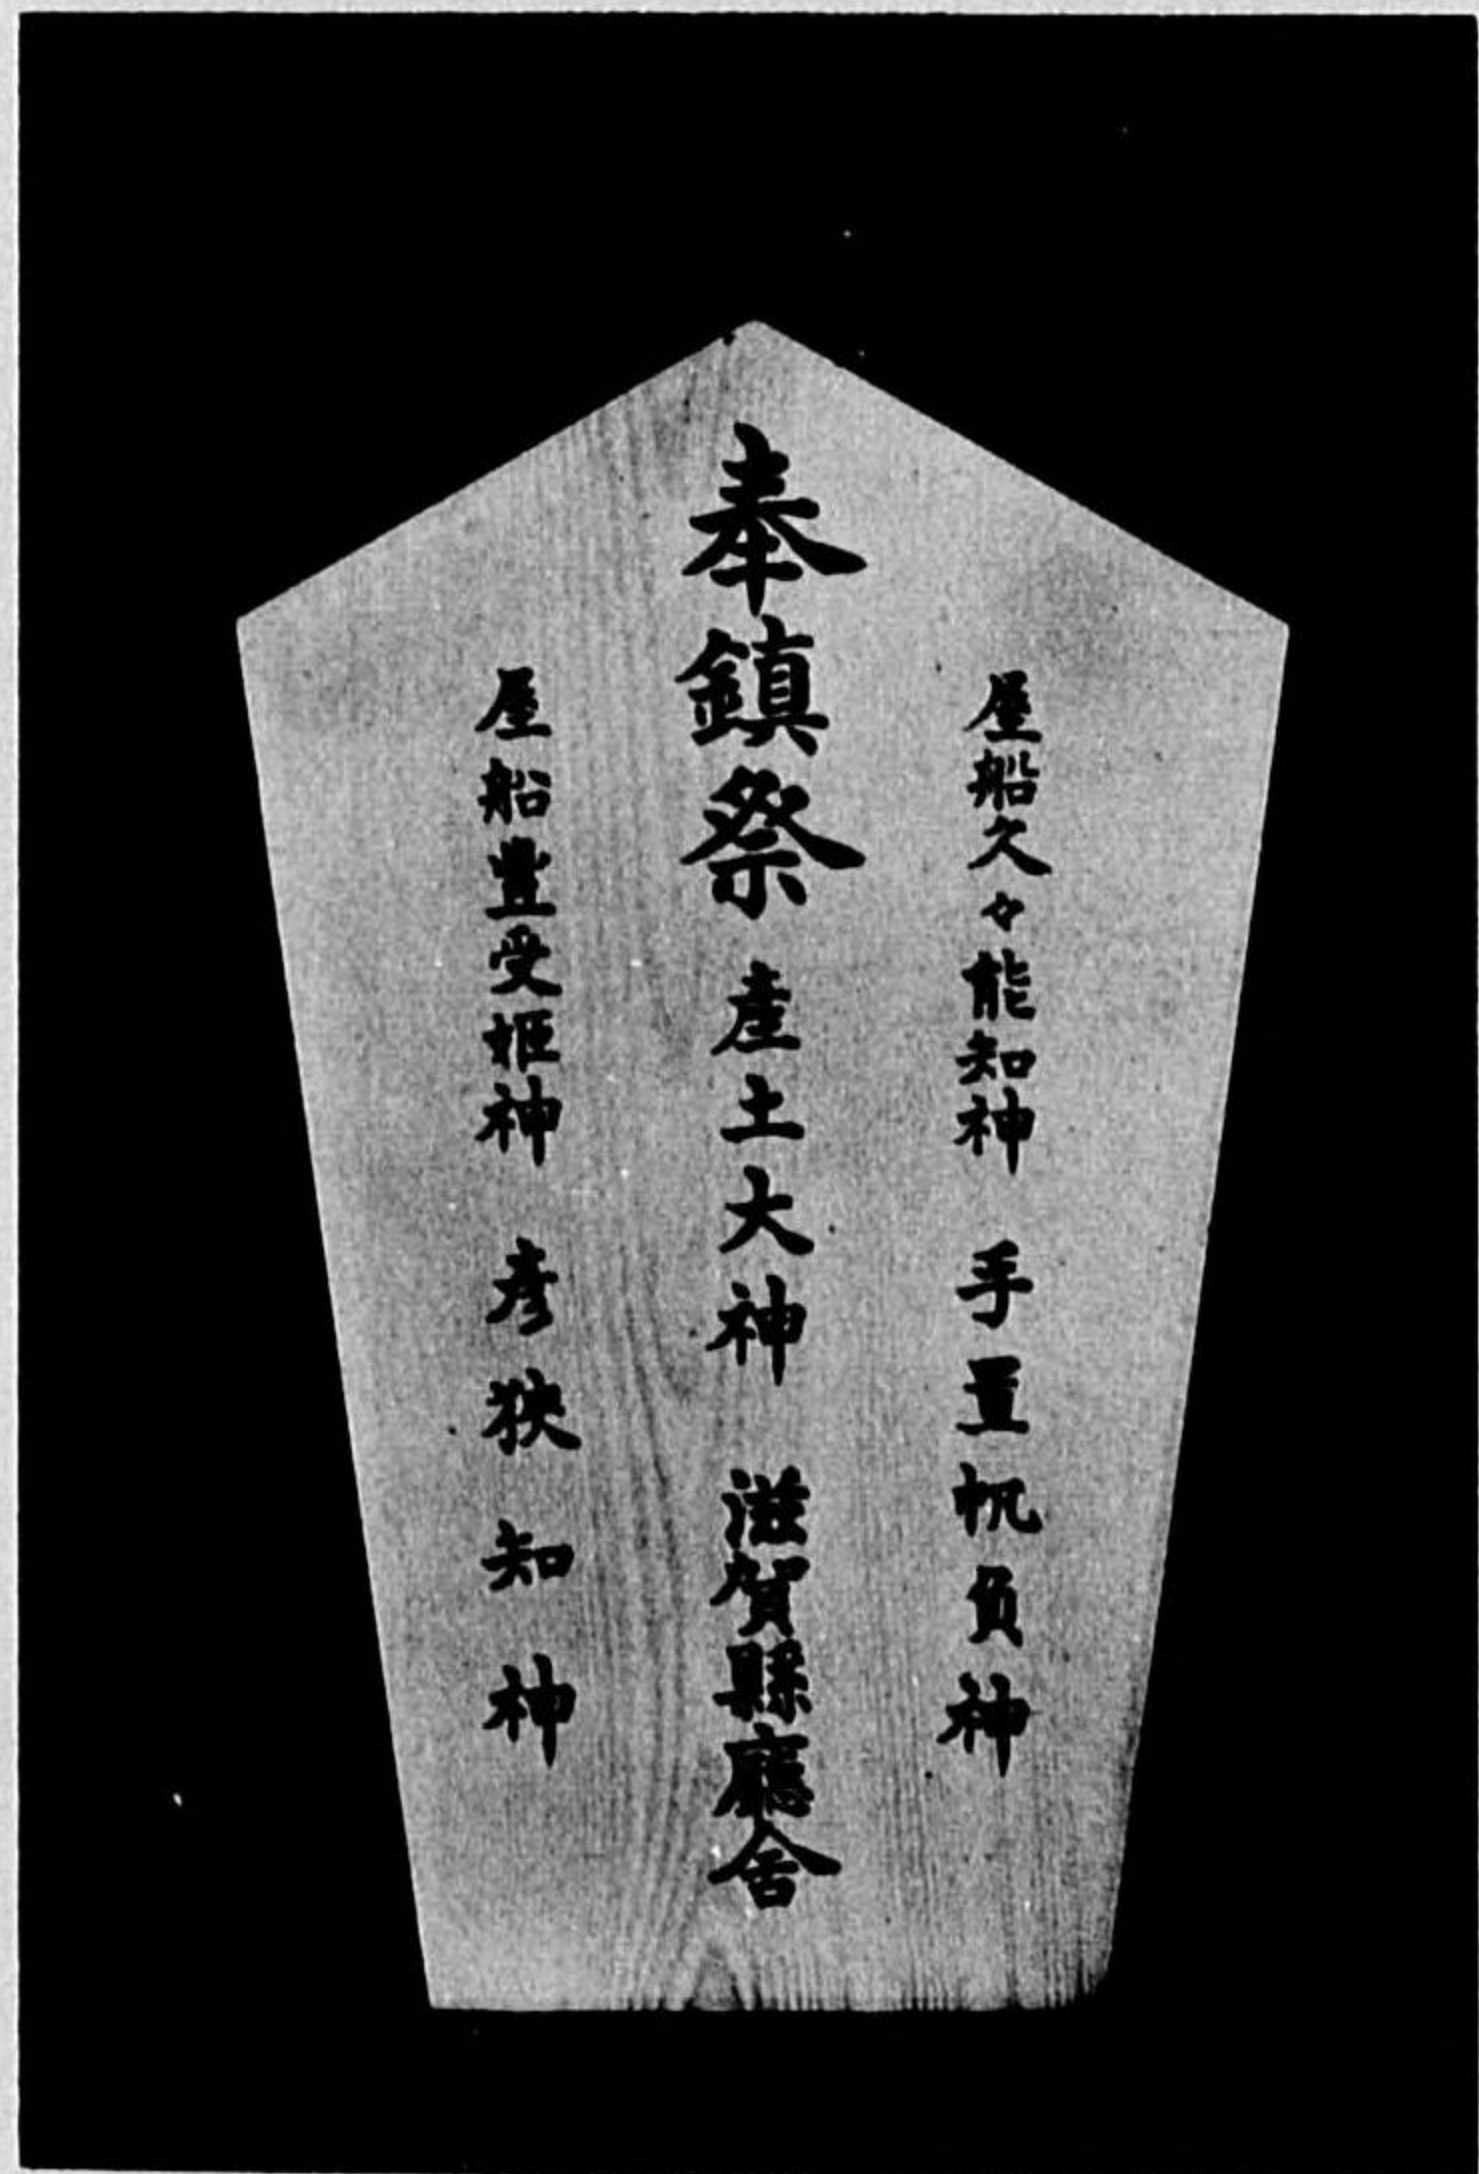 屋船久々能知神 手置帆負神
奉鎮祭 産土大神 滋賀縣廳舍
屋船豊受姫神 彦狹知神